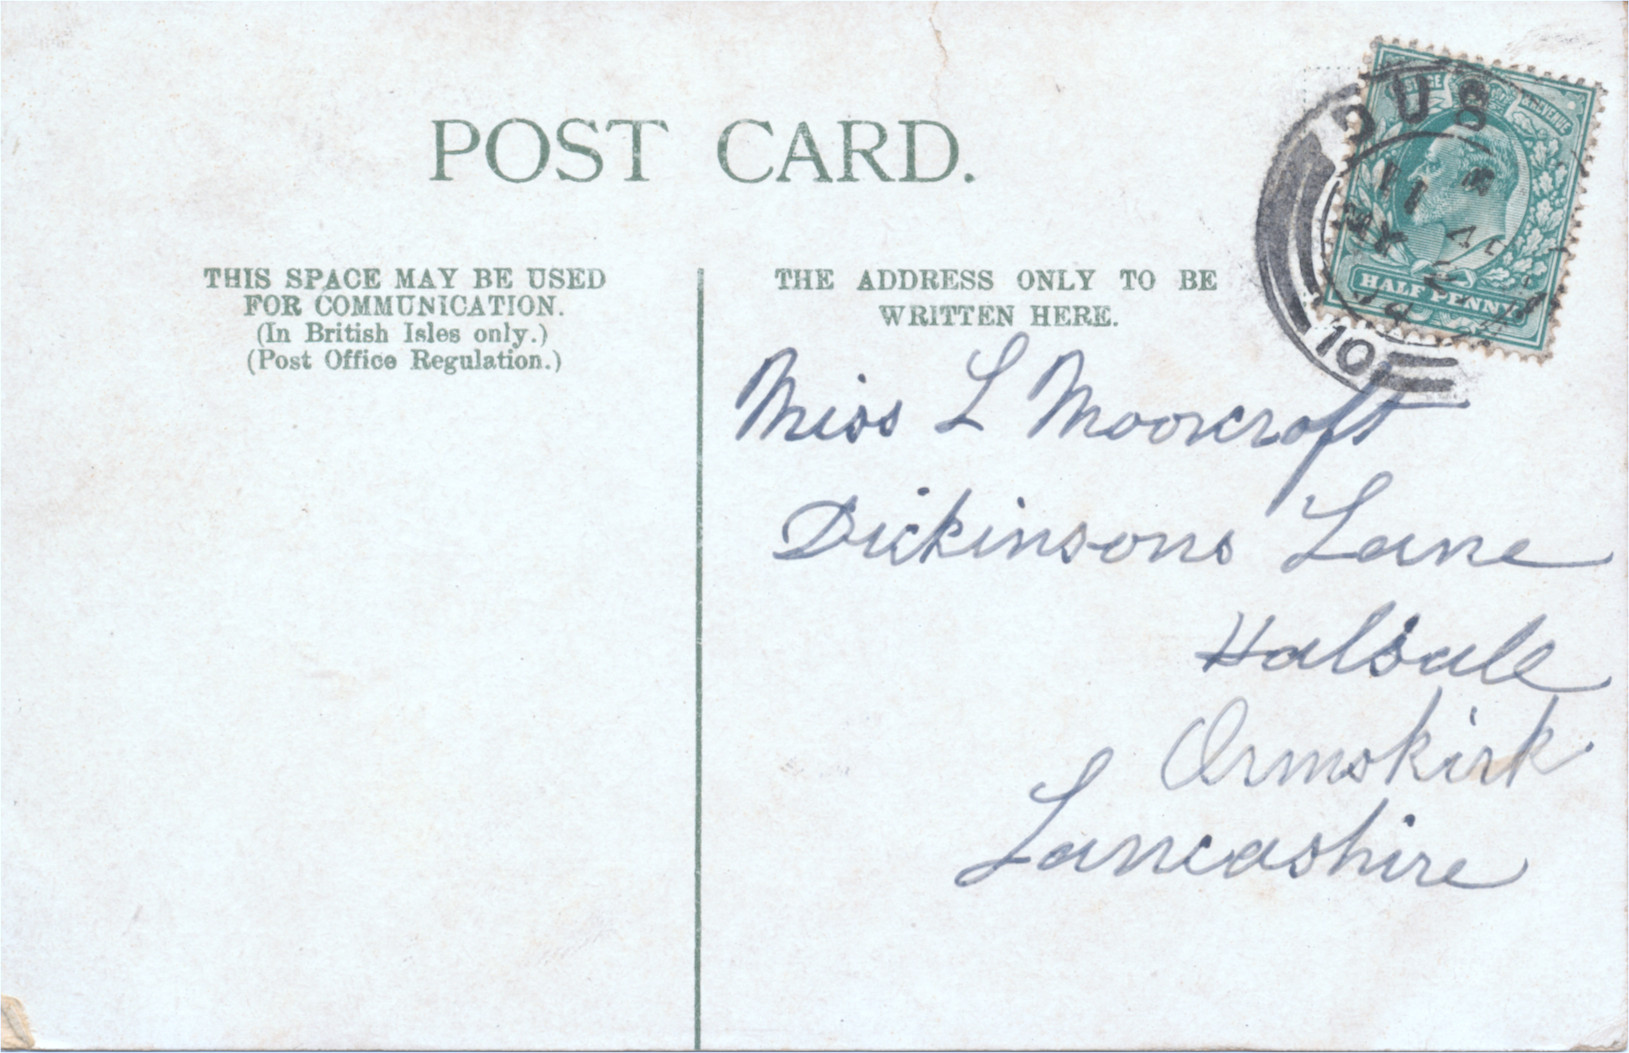 POST CARD.
THIS SPACE MAY BE USED
FOR COMMUNICATION.
(In British Isles only.)
(Post Office Regulation.)
THE ADDRESS ONLY TO BE
WRITTEN HERE.
HALF PENNY
10
Miss L Moorcroft
Dickinsons Lane
Halsall
Ormskirk
Lancashire